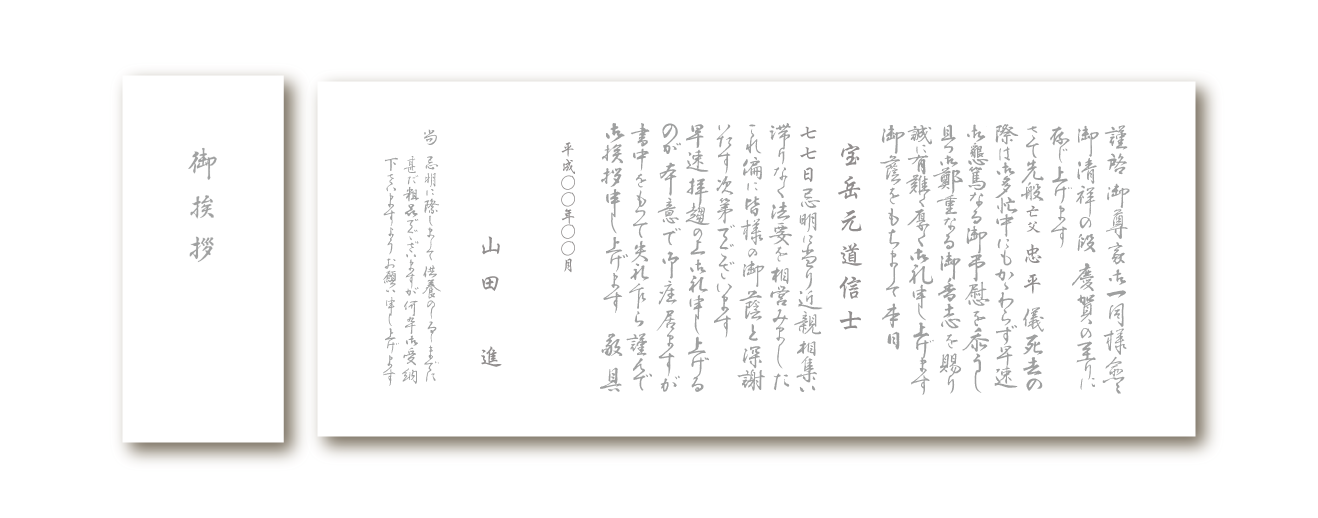 御挨拶
謹啓 御尊家御一同様愈々
御清祥の段 慶賀の至りに
存じ上げます
さて先般 亡父 忠平 儀 死去の
際は御多忙中にもかゝわらず早速
御懇篤なる御弔慰を忝うし
且つ御鄭重なる御香志を賜り
誠に有難く厚く御礼申し上げます
御蔭をもちまして本日
宝岳元道信士
七七日忌明に当り近親相集い
滞りなく法要を相営みました
これ偏に皆様の御蔭と深謝
いたす次第でございます
早速拝趨の上御礼申し上げる
のが本意で御座居ますが
書中をもって失礼乍ら謹んで
御挨拶申し上げます 敬具
平成〇〇年〇〇月
山田 進
尚 忌明に際しまして供養のしるしまでに
甚だ粗品でございますが何卒御受納
下さいますようお願い申し上げます